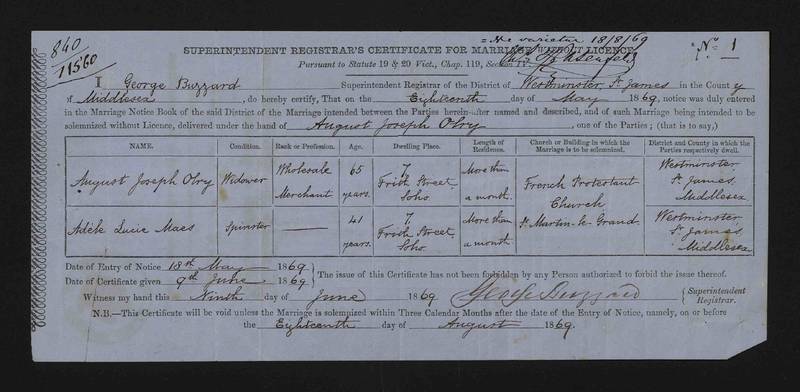 840
11560
Ne varietur 18/8/69
N.º 1
SUPERINTENDENT REGISTRAR'S CERTIFICATE FOR MARRIAGE WITHOUT LICENCE.
Pursuant to Statute 19 & 20 Vict., Chap. 119, Section
I George Buzzard Superintendent Registrar of the District of Westminster, St. James in the County
of Middlesex, do hereby certify, That on the Eighteenth day of May 1869, notice was duly entered
in the Marriage Notice Book of the said District of the Marriage intended between the Parties herein-after named and described, and of such Marriage being intended to be
solemnized without Licence, delivered under the hand of August Joseph Olry, one of the Parties; (that is to say,)
NAME. Condition. Rank or Profession. Age. Dwelling Place. Length of Residence. Church or Building in which the Marriage is to be solemnized. District and County in which the Parties respectively dwell.
August Joseph Olry Widower Wholesale Merchant 65 years. 7 Frith Street Soho More than a month French Protestant Church St. Martin-le-Grand Westminster St. James Middlesex
Adèle Lucie Maes Spinster 41 years. 7 Frith Street Soho More than a month Westminster St. James Middlesex
Date of Entry of Notice 18th May 1869
Date of Certificate given 9th June 1869
The issue of this Certificate has not been forbidden by any Person authorized to forbid the issue thereof.
Witness my hand this Ninth day of June 1869 George Buzzard Superintendent Registrar.
N.B.—This Certificate will be void unless the Marriage is solemnized within Three Calendar Months after the date of the Entry of Notice, namely, on or before
the Eighteenth day of August 1869.